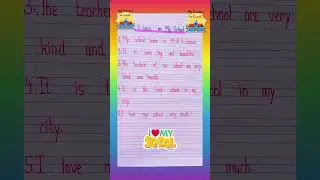 lines on My School
1. My school name is School
2. It is very big and beautiful
3. The teachers of our school are very
kind and humble
4. It is the best school in my
city.
5. I love my school very much.
I MY
SCHOOL
3. the teacher
kind and
It is t
city.
5. I love
school are very
in my
much